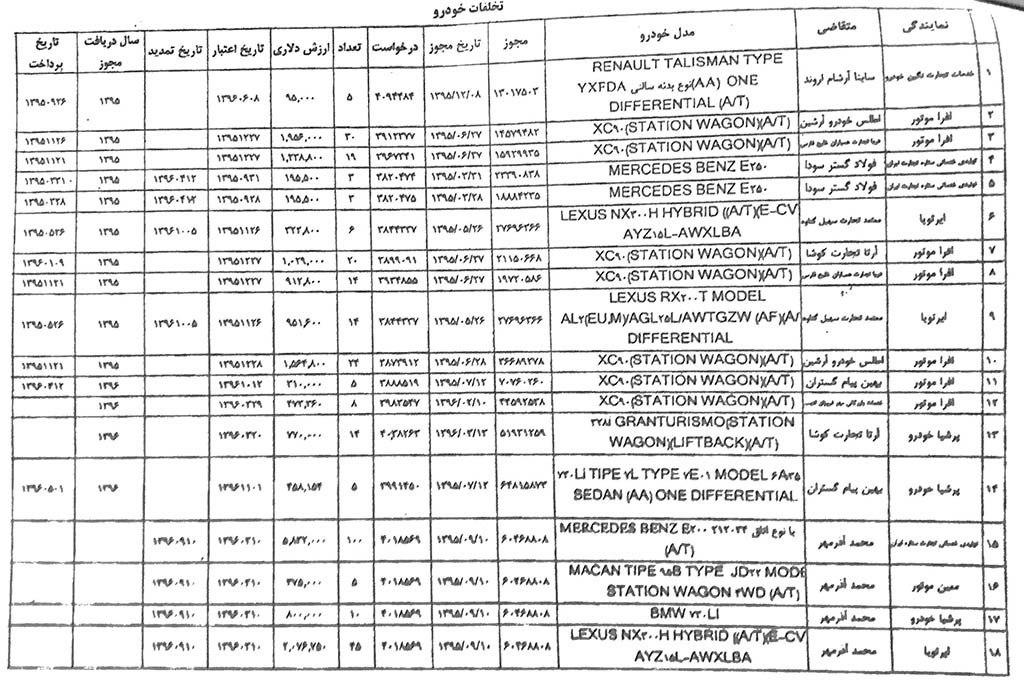 تخلفات خودرو
نمایندگی متقاضی مدل خودرو مجوز تاریخ مجوز درخواست تعداد ارزش دلاری تاریخ اعتبار تاریخ تمدید سال دریافت مجوز تاریخ پرداخت
۱ خدمات تجارت نگین خودرو ساینا آرشام اروند RENAULT TALISMAN TYPE
YXFDA نوع بدنه سالنی (AA) ONE
DIFFERENTIAL (A/T) ۱۳۰۱۷۵۰۳ ۱۳۹۵/۱۲/۰۸ ۴۰۹۴۴۸۴ ۵ ۹۵,۰۰۰ ۱۳۹۶۰۶۰۸ ۱۳۹۵ ۱۳۹۵۰۹۲۶
۲ افرا موتور اطلس خودرو آرشین XC۹۰(STATION WAGON)(A/T) ۱۴۵۷۹۴۸۲ ۱۳۹۵/۰۶/۲۷ ۳۹۱۲۳۷۷ ۳۰ ۱,۹۵۶,۰۰۰ ۱۳۹۵۱۲۲۷ ۱۳۹۵ ۱۳۹۵۱۱۲۶
۳ افرا موتور XC۹۰(STATION WAGON)(A/T) ۱۵۹۲۹۹۳۵ ۱۳۹۵/۰۶/۲۷ ۳۹۶۷۳۴۱ ۱۹ ۱,۲۳۸,۸۰۰ ۱۳۹۵۱۲۲۷ ۱۳۹۵ ۱۳۹۵۱۱۲۱
۴ فولاد گستر سودا MERCEDES BENZ E۲۵۰ ۲۳۳۹۰۸۳۸ ۱۳۹۵/۰۲/۳۱ ۳۸۲۰۴۷۴ ۳ ۱۹۵,۵۰۰ ۱۳۹۵۰۹۳۱ ۱۳۹۶۰۴۱۲ ۱۳۹۵ ۱۳۹۵۰۳۳۱۰
۵ فولاد گستر سودا MERCEDES BENZ E۲۵۰ ۱۸۸۸۴۲۳۵ ۱۳۹۵/۰۲/۲۸ ۳۸۲۰۴۷۵ ۳ ۱۹۵,۵۰۰ ۱۳۹۵۰۹۲۸ ۱۳۹۶۰۴۱۲ ۱۳۹۵ ۱۳۹۵۰۳۲۸
۶ ایرتویا معتمد تجارت سهیل گناوه LEXUS NX۳۰۰H HYBRID ((A/T)(E-CV
AYZ۱۵L-AWXLBA ۲۷۶۹۶۳۶۶ ۱۳۹۵/۰۵/۲۶ ۳۸۴۴۳۳۷ ۶ ۳۲۲,۸۰۰ ۱۳۹۵۱۱۲۶ ۱۳۹۶۱۰۰۵ ۱۳۹۵ ۱۳۹۵۰۵۲۶
۷ افرا موتور آرتا تجارت کوشا XC۹۰(STATION WAGON)(A/T) ۲۱۱۵۰۶۶۸ ۱۳۹۵/۰۶/۲۷ ۳۸۹۹۰۹۱ ۲۰ ۱,۰۲۹,۰۰۰ ۱۳۹۵۱۲۲۷ ۱۳۹۵ ۱۳۹۶۰۱۰۹
۸ افرا موتور XC۹۰(STATION WAGON)(A/T) ۱۹۷۲۰۵۸۶ ۱۳۹۵/۰۶/۲۷ ۳۹۳۴۸۵۵ ۱۴ ۹۱۲,۸۰۰ ۱۳۹۵۱۲۲۷ ۱۳۹۵ ۱۳۹۵۱۱۲۱
۹ ایرتویا معتمد تجارت سهیل گناوه LEXUS RX۲۰۰T MODEL
AL۲(EU,M)/AGL۲۵L/AWTGZW (AF)(A/
DIFFERENTIAL ۲۷۶۹۶۳۶۶ ۱۳۹۵/۰۵/۲۶ ۳۸۴۴۳۳۷ ۱۴ ۹۵۱,۶۰۰ ۱۳۹۵۱۱۲۶ ۱۳۹۶۱۰۰۵ ۱۳۹۵ ۱۳۹۵۰۵۲۶
۱۰ افرا موتور اطلس خودرو آرشین XC۹۰(STATION WAGON)(A/T) ۳۶۶۸۹۲۷۸ ۱۳۹۵/۰۶/۲۸ ۳۸۷۳۹۱۲ ۲۴ ۱,۵۶۴,۸۰۰ ۱۳۹۵۱۲۲۸ ۱۳۹۵ ۱۳۹۵۱۱۲۱
۱۱ افرا موتور بهین پیام گستران XC۹۰(STATION WAGON)(A/T) ۷۰۷۶۰۲۶۰ ۱۳۹۵/۰۷/۱۲ ۳۸۸۸۵۱۹ ۵ ۳۱۰,۰۰۰ ۱۳۹۶۱۰۱۲ ۱۳۹۶ ۱۳۹۶۰۴۱۲
۱۲ افرا موتور XC۹۰(STATION WAGON)(A/T) ۴۲۵۹۲۵۳۸ ۱۳۹۶/۰۲/۱۰ ۳۹۸۲۵۴۷ ۸ ۴۷۲,۳۶۰ ۱۳۹۶۰۳۲۹ ۱۳۹۶
۱۳ پرشیا خودرو آرتا تجارت کوشا ۳۲۸i GRANTURISMO(STATION
WAGON)(LIFTBACK)(A/T) ۵۱۹۳۱۲۵۹ ۱۳۹۶/۰۳/۱۳ ۴۰۳۸۲۶۳ ۱۴ ۷۷۰,۰۰۰ ۱۳۹۶۰۳۲۰ ۱۳۹۶
۱۴ پرشیا خودرو بهین پیام گستران ۷۳۰Li TIPE ۷L TYPE ۷E۰۱ MODEL ۶A۲۵
SEDAN (AA) ONE DIFFERENTIAL ۶۴۸۱۵۸۷۳ ۱۳۹۵/۰۷/۱۲ ۳۹۹۱۴۵۰ ۵ ۴۵۸,۱۵۴ ۱۳۹۶۱۱۰۱ ۱۳۹۶ ۱۳۹۶۰۵۰۱
۱۵ محمد آذرمهر MERCEDES BENZ E۲۰۰ ۲۱۲.۰۳۴ با نوع اتاق
(A/T) ۶۰۴۶۸۸۰۸ ۱۳۹۵/۰۹/۱۰ ۴۰۱۸۵۶۹ ۱۰۰ ۵,۸۳۲,۰۰۰ ۱۳۹۶۰۳۱۰ ۱۳۹۶۰۹۱۰
۱۶ معین موتور محمد آذرمهر MACAN TIPE ۹۵B TYPE JD۲۲ MODE
STATION WAGON ۴WD (A/T) ۶۰۴۶۸۸۰۸ ۱۳۹۵/۰۹/۱۰ ۴۰۱۸۵۶۹ ۵ ۳۷۵,۰۰۰ ۱۳۹۶۰۳۱۰ ۱۳۹۶۰۹۱۰
۱۷ پرشیا خودرو محمد آذرمهر BMW ۷۳۰LI ۶۰۴۶۸۸۰۸ ۱۳۹۵/۰۹/۱۰ ۴۰۱۸۵۶۹ ۱۰ ۸۰۰,۰۰۰ ۱۳۹۶۰۳۱۰ ۱۳۹۶۰۹۱۰
۱۸ ایرتویا محمد آذرمهر LEXUS NX۳۰۰H HYBRID ((A/T)(E-CV
AYZ۱۵L-AWXLBA ۶۰۴۶۸۸۰۸ ۱۳۹۵/۰۹/۱۰ ۴۰۱۸۵۶۹ ۴۵ ۲,۰۷۶,۷۵۰ ۱۳۹۶۰۳۱۰ ۱۳۹۶۰۹۱۰